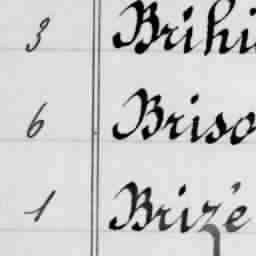 3 Brihi
6 Briso
1 Brizé